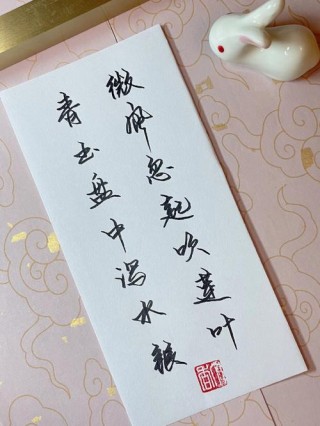 微风忽起吹莲叶
青玉盘中泻水银